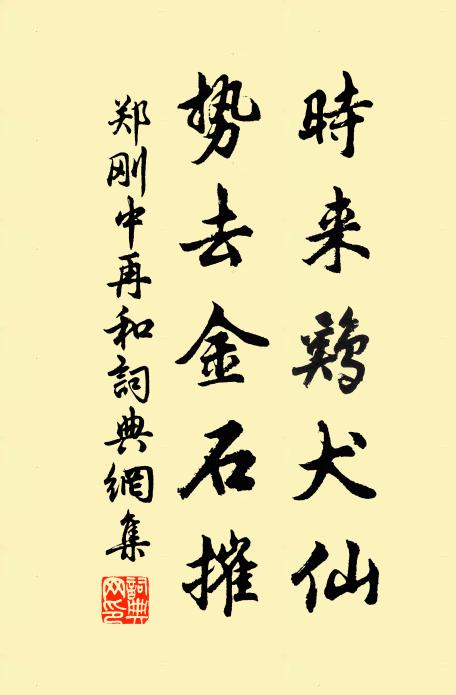 時来鷄犬仙
势去金石摧
郑刚中再和詞典網集
詞典網印